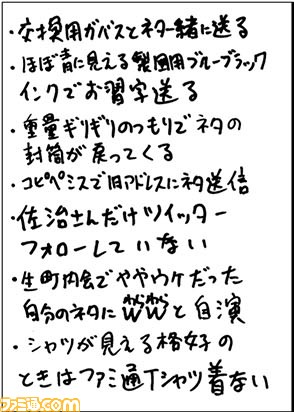 ・交換用ガバスとネタ一緒に送る
・ほぼ青に見える製図用ブルーブラック
インクでお習字送る
・重量ギリギリのつもりでネタの
封筒が戻ってくる
・コピペミスで旧アドレスにネタ送信
・佐治さんだけツイッター
フォローしていない
・生町内会でややウケだった
自分のネタにwwと自演
・シャツが見える格好の
ときはファミ通Tシャツ着ない
ファミ通.com